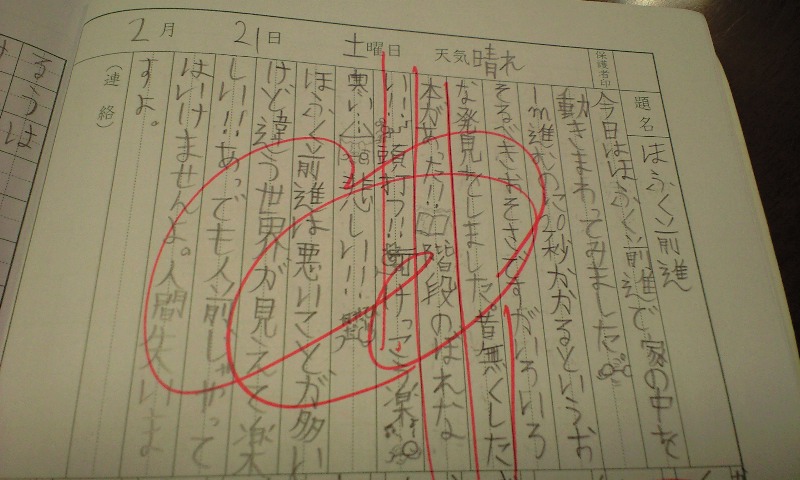 2月 21日 土曜日 天気 晴れ
保護者印
題名 ほふく前進
今日はほふく前進で家の中を
動きまわってみました。
1m進むのに20秒かかるというお
そるべきおそさですがいろいろ
な発見をしました。昔無くした
本があった!!階段のはれな
い!!頭打つ!!けっこう楽
寒い 悲しい!!
ほふく前進は悪いことが多い
けど違う世界が見えて楽
しい!!あっでも人前じゃやって
はいけませんよ。人間失いま
すよ。
(連絡)
るうは